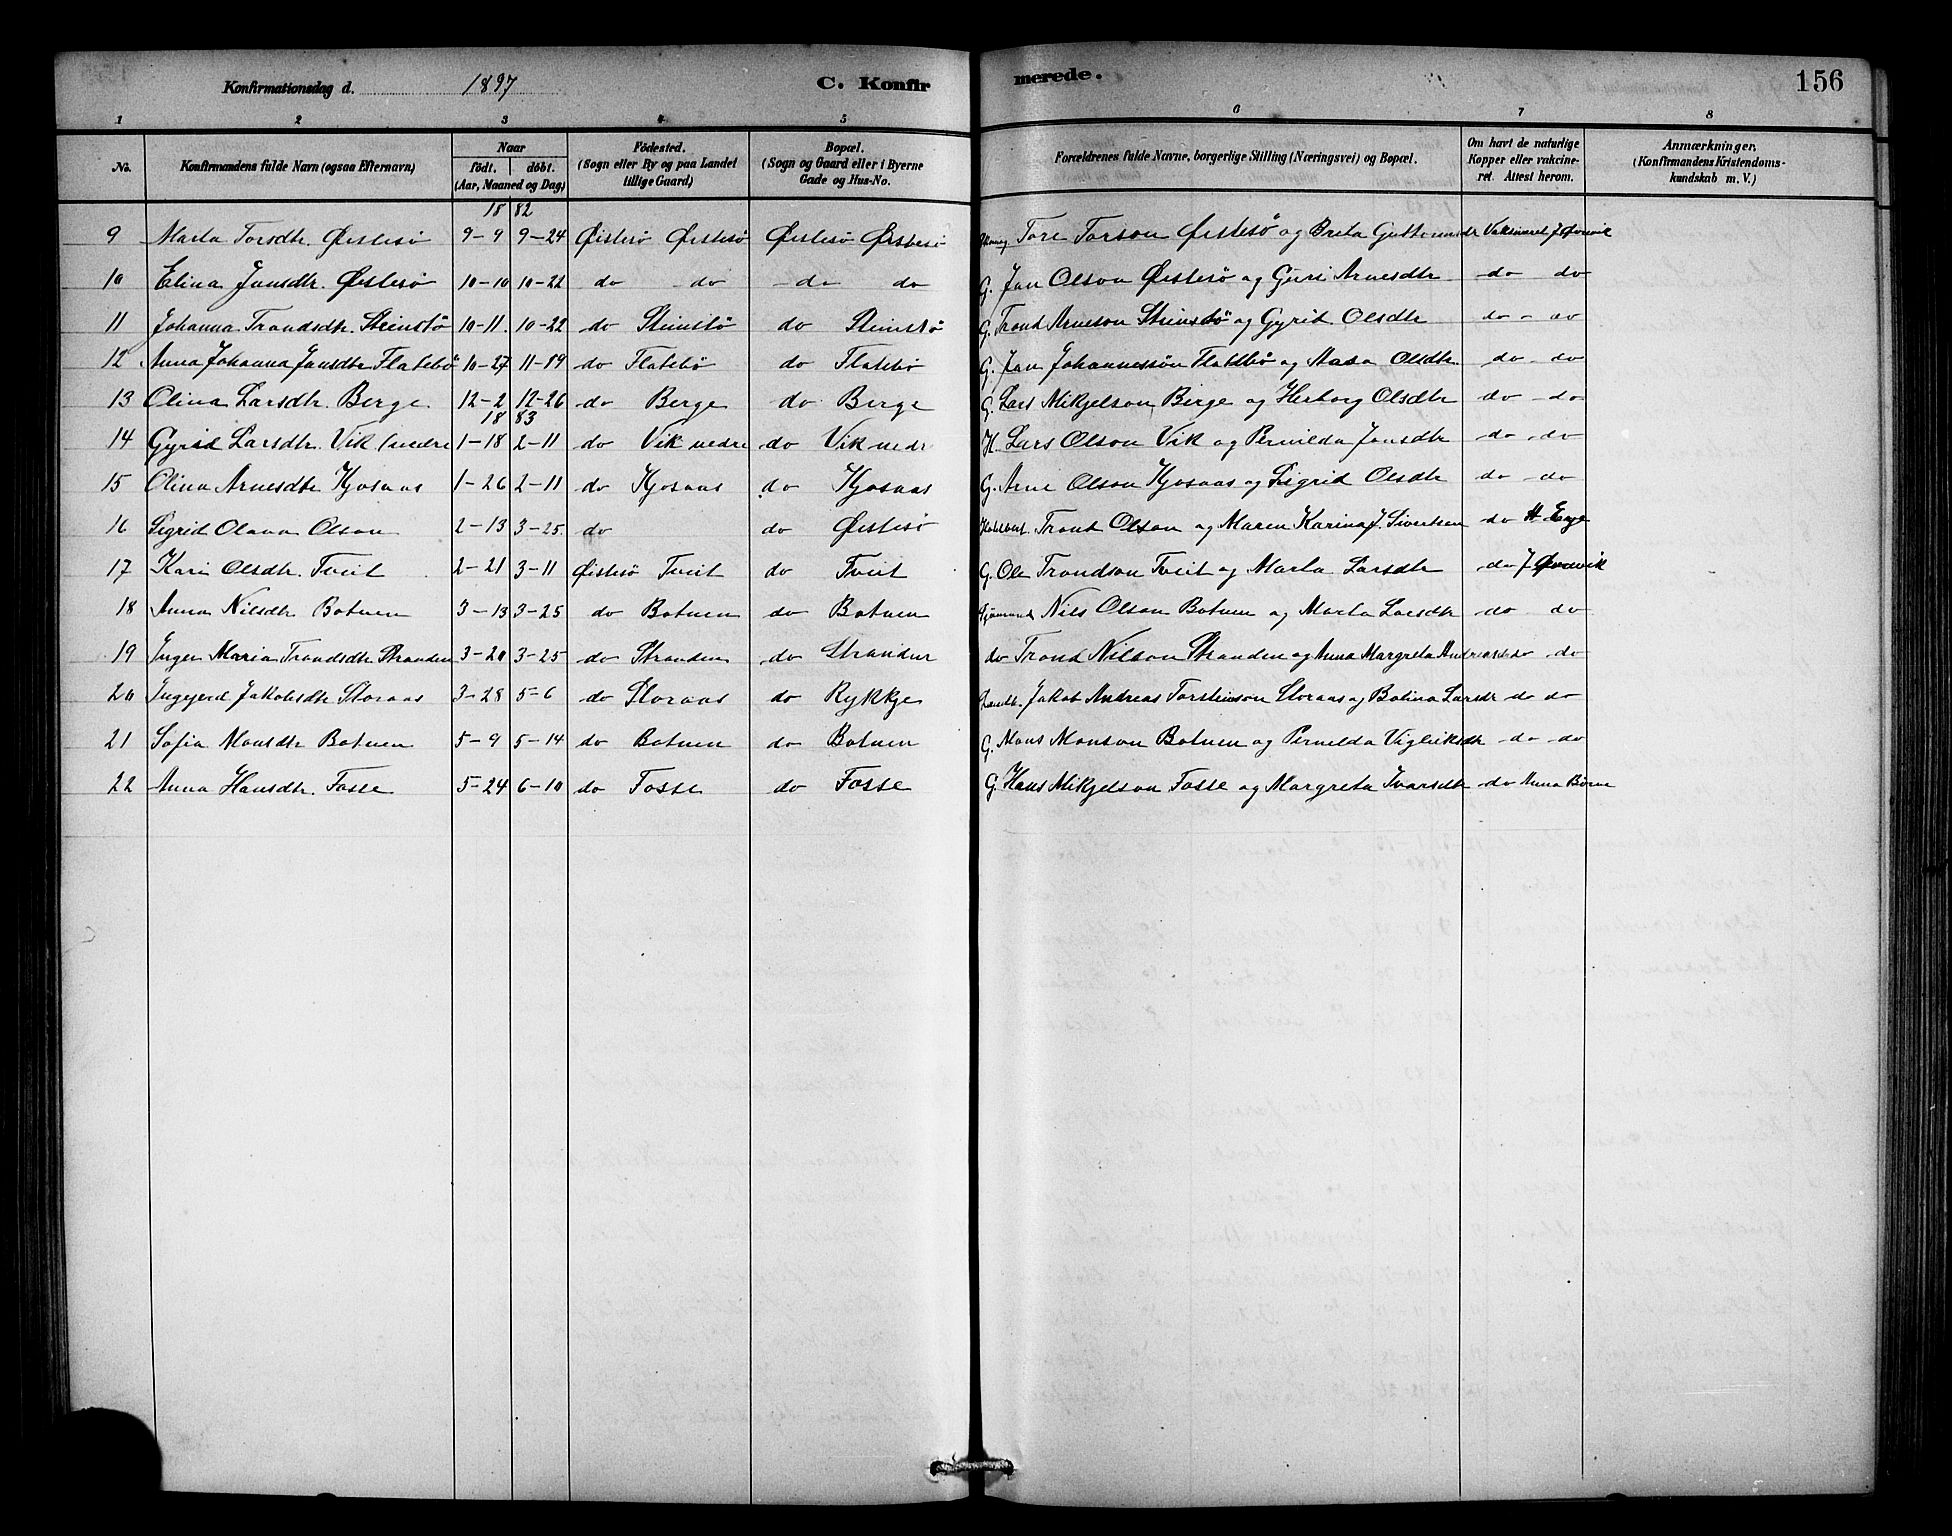 Konfirmationsdag d. 1897 C. Konfirmerede. 156
1 2 3 4 5 6 7 8
No. Konfirmandens fulde Navn (ogsaa Efternavn) Naar födt. döbt. (Aar, Maaned og Dag) Födested. (Sogn eller By og paa Landet tillige Gaard.) Bopæl. (Sogn og Gaard eller i Byerne Gade og Hus-No. Forældrenes fulde Navne, borgerlige Stilling (Næringsvei) og Bopæl. Om havt de naturlige Kopper eller vakcineret. Attest herom. Anmærkninger. (Konfirmandens Kristendomskundskab m. V.)
1882
9 Marta Torsdtr. Østesø 9-9 9-24 Øistesø Østesø Østesø Østesø Tore Torson Østesø og Breta Guttormsdtr Vaksineret J Øvrevik
10 Elina Jansdtr. Østesø 10-10 10-22 do do do do G. Jan Olson Østesø og Guri Arnesdtr do do
11 Johanna Trondsdtr. Steinstø 10-11. 10-22 do Steinstø do Steinstø G. Trond Arneson Steinstø og Gyrid Olsdtr do do
12 Anna Johanna Jansdtr Flatebø 10-27 11-19 do Flatebø do Flatebø G. Jan Johannesson Flatebø og Olsdtr. do do
13 Olina Larsdtr. Berge. 12-2 12-26 do Berge do Berge G. Lars Mikjelson Berge og Herborg Olsdtr do do
1883
14 Gyrid Larsdtr. Vik (nedre 1-18 2-11 do Vik nedre do Vik nedr H. Lars Olson Vik og Pernilda Jansdtr do do
15 Olina Arnesdtr Kjosaas 1-26 2-11 do Kjosaas do Kjosaas G. Arne Olson Kjosaas og Sigrid Olsdtr do do
16 Sigrid Olava Olson 2-13 3-25. do do Østesø Trond Olson og Maren Karina J. Sivertsen do H Eye
17 Kari Olsdtr. Tveit 2-21 3-11 Øistesø Tveit do Tveit G. Ole Trondson Tveit og Marta Larsdtr do J Øvrevik
18 Anna Nilsdtr Botnen 3-13 3-25 do Botnen do Botnen Nils Olson Botnen og Marta Larsdtr do do
19 Inger Maria Trondsdtr Stranden 3-20 3-25 do Stranden do Stranden do Trond Nilson Stranden og Anna Margreta do do
20 Ingejerd Jakobsdtr Storaas 3-28 5-6 do Storaas do Rykkje Jakob Andreas Torsteinson Storaas og Botina Larsdr do do
21 Sofia Monsdtr Botnen 5-9 5-14 do Botnen do Botnen G. Mons Monson Botnen og Pernilda Vigleiksdtr do do
22 Anna Hansdtr. Fosse 5-24 6-10 do Fosse do Fosse G. Hans Mikjelson Fosse og Margreta Ivarsdtr do Anna Børve